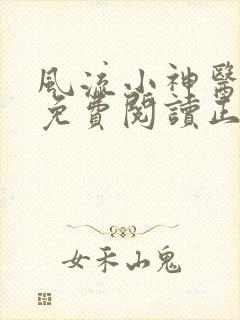 風流小神醫
免費閱讀正
女禾山鬼